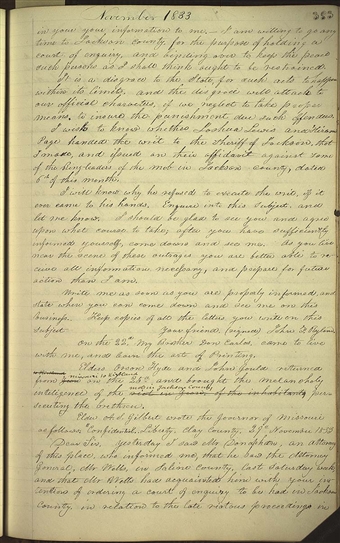 November 1833 383
in your information to me. I am willing to go any
time to Jackson County, for the purpose of holding a
court of enquiry, and binding over to keep the peace
such persons as I shall think ought to be restrained.
It is a disgrace to the State, for such acts to happen
within its limits, and the disgrace will attach to
our official characters, if we neglect to take proper
means, to insure the punishment due such offenders.
I wish to know whether Joshua Lewis and Hiram
Page handed the writ to the Sheriff of Jackson, that
I made, and issued on their affidavit against some
of the ringleaders of the mob in Jackson county, dated
6th of this month.
I will know why he refused to execute the writ, if it
ever came to his hands. Enquire into this subject, and
let me know. I should be glad to see you and agree
upon what course to take, after you have sufficiently
informed yourself, come down and see me. As you live
near the scene of these outrages you are better able to re-
ceive all information necessary, and prepare for future
action than I am.
Write me as soon as you are properly informed, and
state when you can come down and see me on this
business. Keep copies of all the letters you write on this
subject. Your friend, (signed) John F. Ryland
On the 22nd My Brother Don Carlos, came to live
with me, and learn the art of Printing.
Elders Orson Hyde and John Gould returned
from on the 25th and brought the melancholy
mob in Jackson County
intelligence of the per-
secuting the brethren.
Elder A. S. Gilbert wrote the Governor of Missouri
as follows "Confidential. Liberty, Clay County, 29th November 1833
Dear Sir, Yesterday I saw Mr. Doniphan, an attorney
of this place, who informed me, that he saw the Attorney
General, Mr. Wells, in Saline county, last Saturday week,
and that Mr. Wells had acquainted him with your in-
tention of ordering a court of enquiry to be had in Jackson
County in relation to the late riotous proceedings in